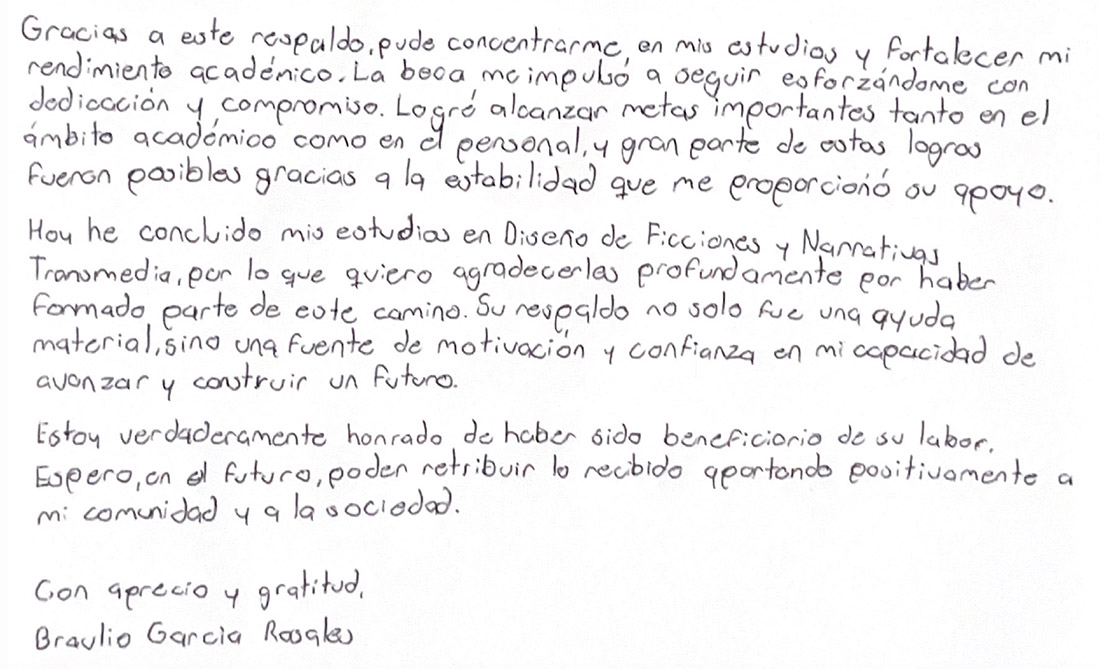 Gracias a este respaldo, pude concentrarme en mis estudios y fortalecer mi
rendimiento académico. La beca me impulsó a seguir esforzándome con
dedicación y compromiso. Logré alcanzar metas importantes tanto en el
ámbito académico como en el personal, y gran parte de estos logros
fueron posibles gracias a la estabilidad que me proporcionó su apoyo.
Hoy he concluido mis estudios en Diseño de Ficciones y Narrativas
Transmedia, por lo que quiero agradecerles profundamente por haber
formado parte de este camino. Su respaldo no solo fue una ayuda
material, sino una fuente de motivación y confianza en mi capacidad de
avanzar y construir un futuro.
Estoy verdaderamente honrado de haber sido beneficiario de su labor.
Espero, en el futuro, poder retribuir lo recibido aportando positivamente a
mi comunidad y a la sociedad.
Con aprecio y gratitud,
Braulio Garcia Rosales